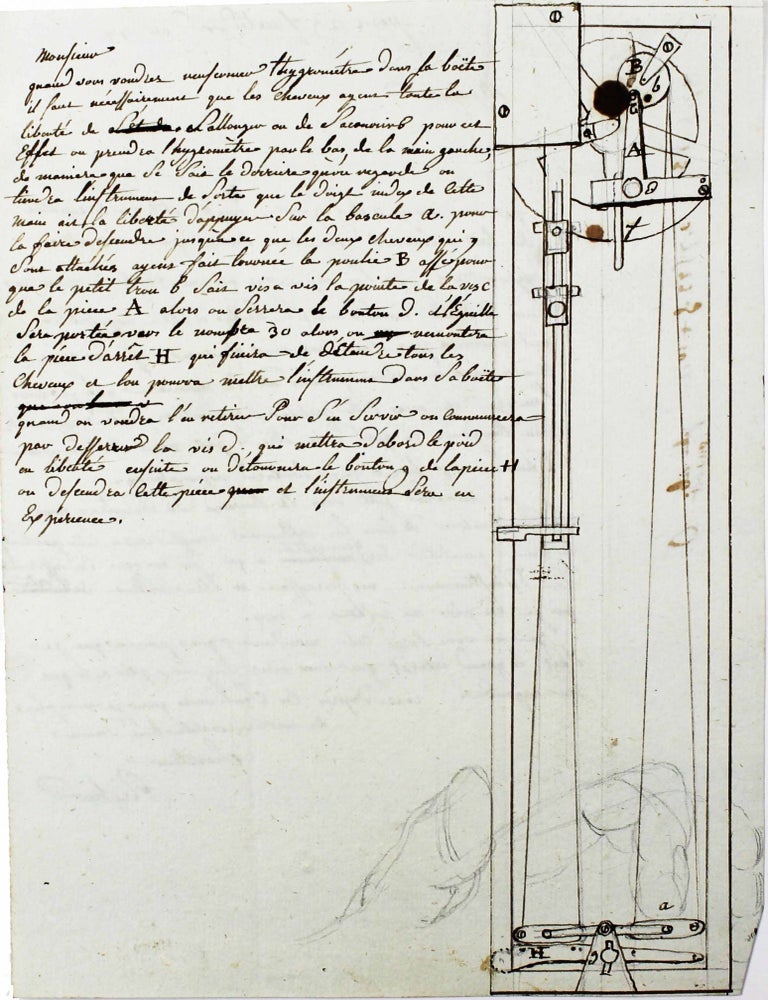 Monsieur
quand vous voudrez renfermer l'hygrométre dans sa boëte
il faut nécessairement que les cheveux ayent toute la
liberté de s'allonger ou de Sacourcir pour cet
Effet on prendra l'hygrometre par le bas, de la main gauche,
de maniere que se Soit le derriere qu'on regarde on
tiendra l'instrument de Sorte que le doigt index de cette
main ait la liberté d'appuyer Sur la bascule a. pour
la faire descendre jusqua ce que les deux cheveux qui y
Sont attachés ayent fait tourner la poulie B assé pour
que le petit trou b Soit vis a vis la pointe de la vis C
de la piece A alors on Serrera le bouton d. et l'Eguille
Sera portée vers le nombre 30 alors on remontera
la piéce d'arrêt H qui finira de détendre tous les
cheveux et lon pourra mettre l'instrument dans Sa boëte
quand on voudra l'en retirer Pour S'en Servir on commencera
par desserrer la vis d. qui mettra d'abord le poid
en liberté ensuite on détournera le bouton g de la piéce H
on descendra cette piéce et l'instrument Sera en
Experience.
B
b
A
D
a
H